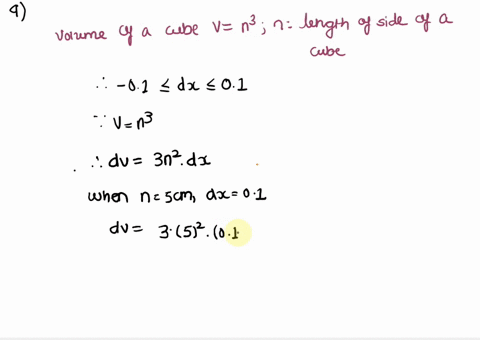 9)
Volume of a cube V = n³ ; n = length of side of a
cube
∴ -0.1 ≤ dx ≤ 0.1
∵ V = n³
∴ dv = 3n². dx
when n = 5cm, dx = 0.1
dv = 3·(5)².(0.1